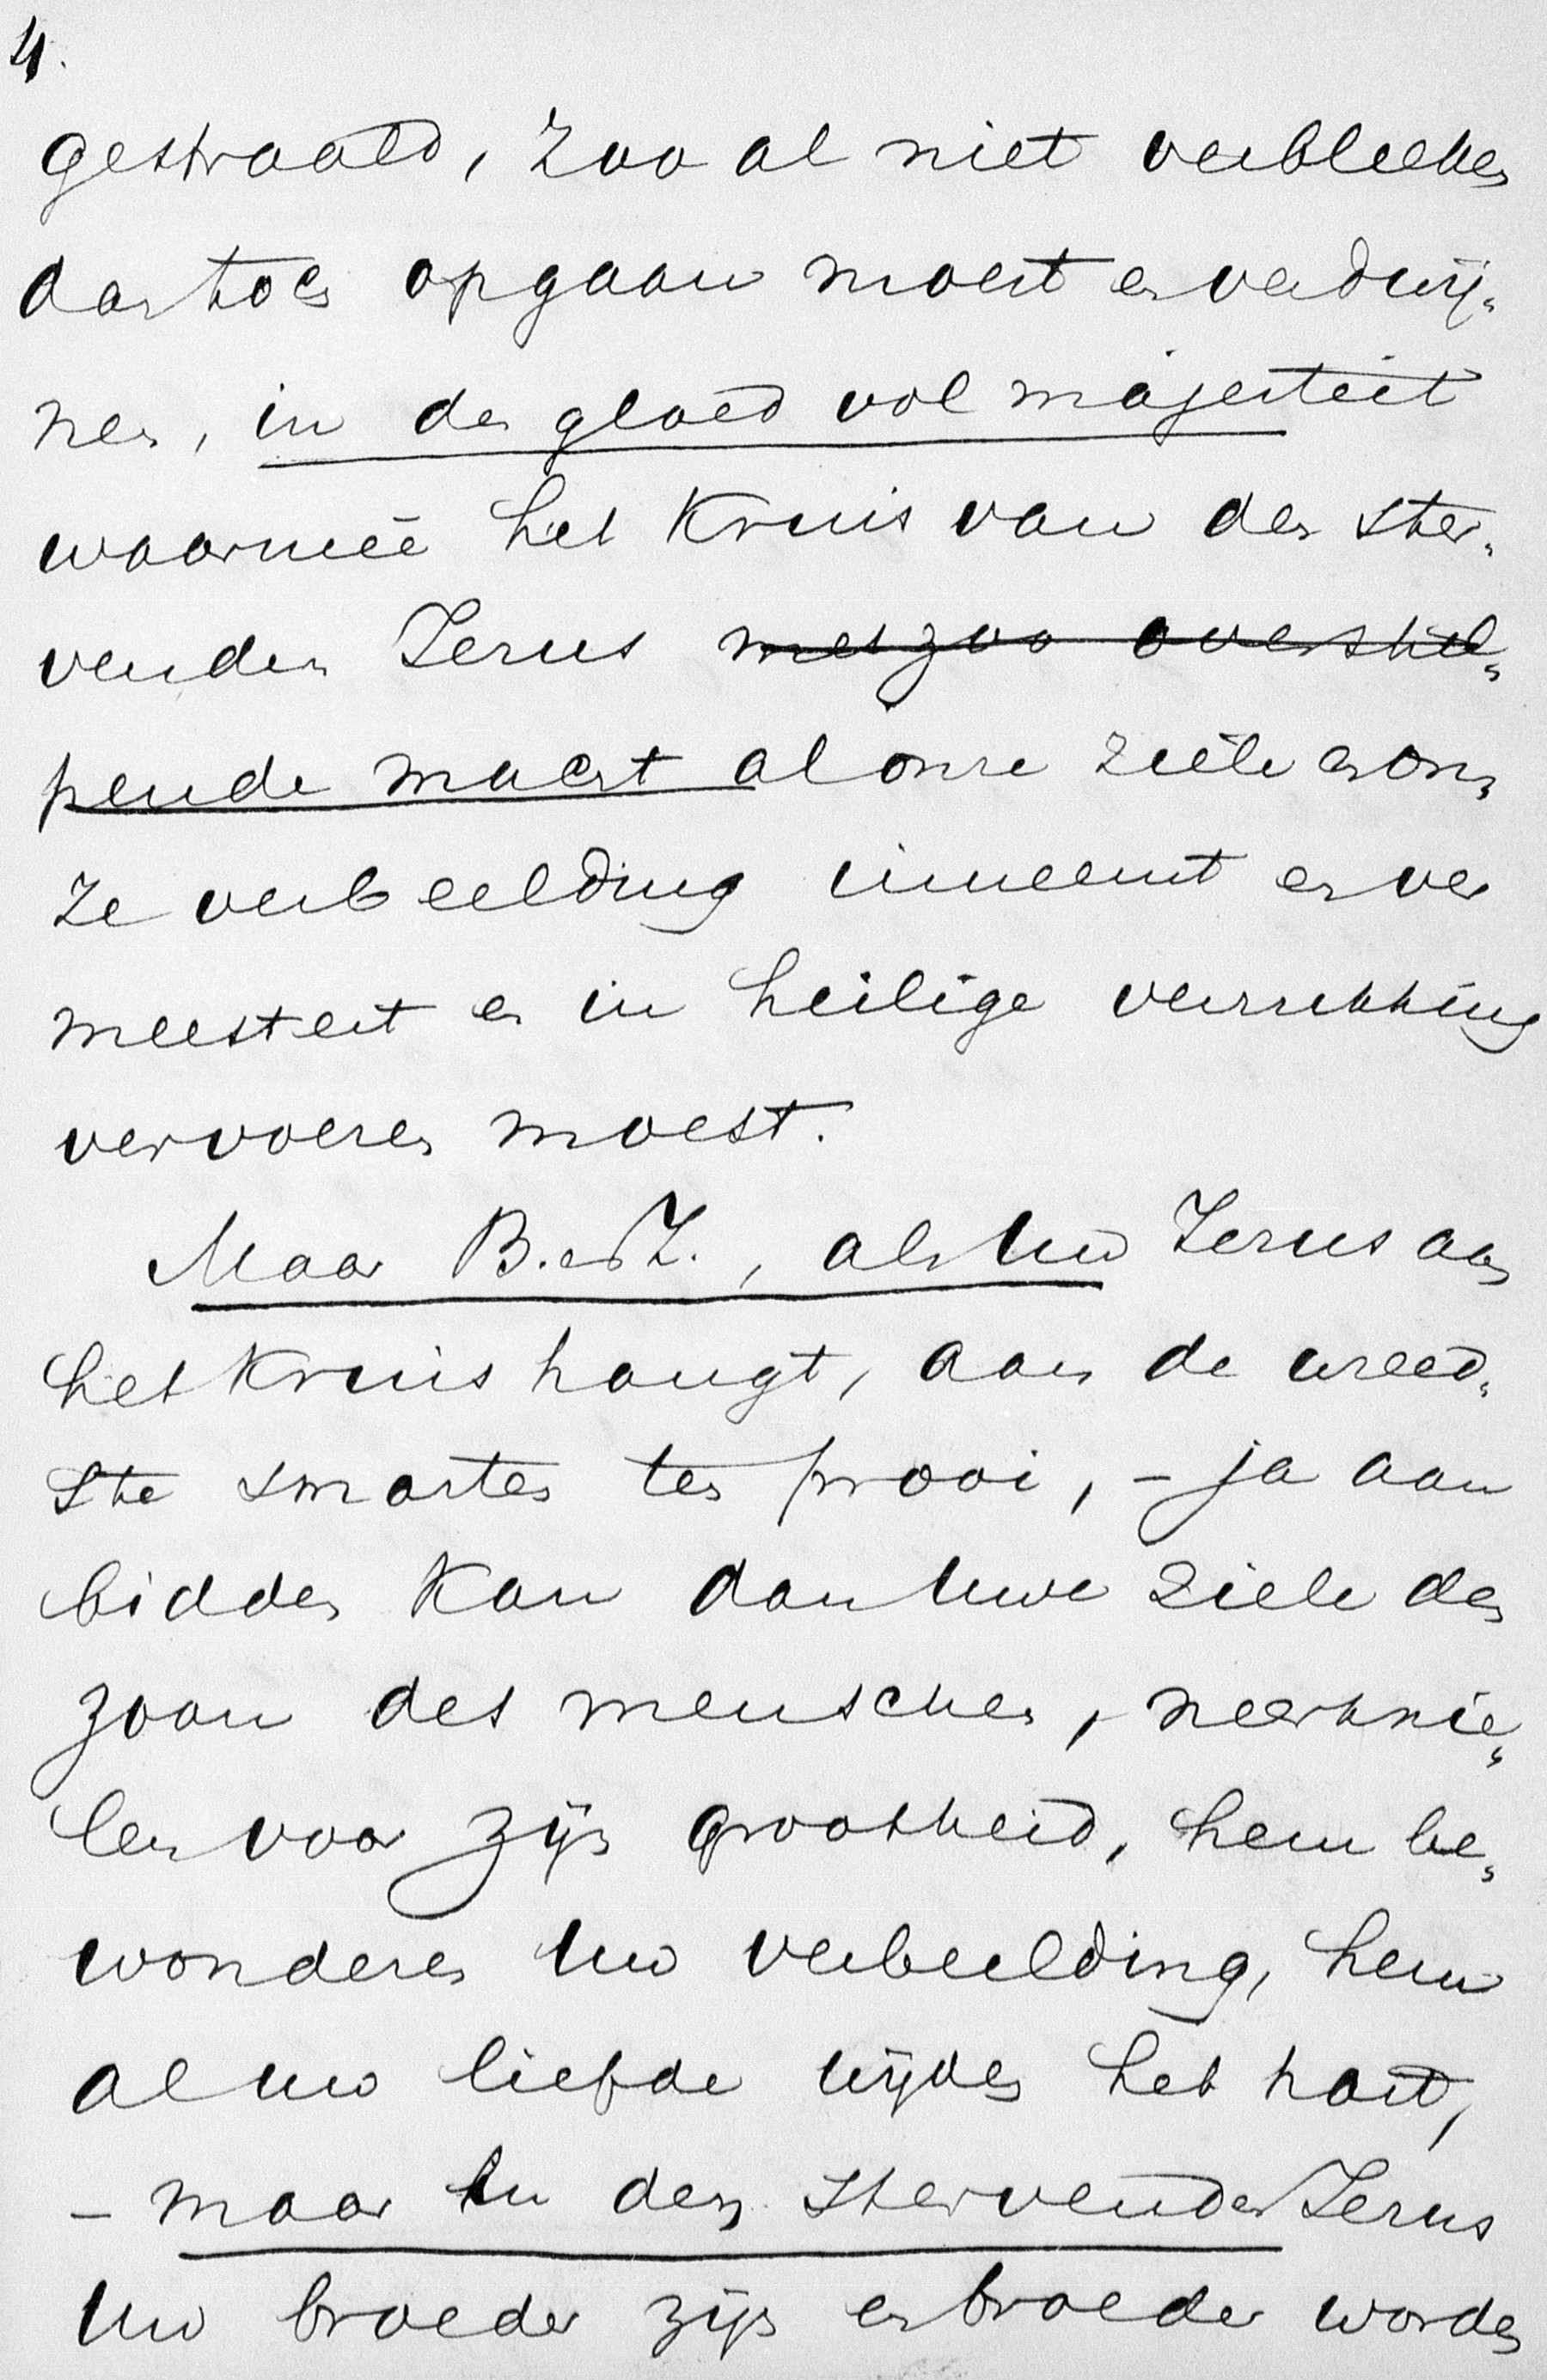 4.
gestraald, zoo al niet verbleeken
dan toch opgaan moest en verdwij-
nen, in den gloed vol majesteit
waarmeê het Kruis van den ster-
venden Jezus met zoo overstel-
pende macht al onze ziele en on-
ze verbeelding inneemt en ver
meestert en in heilige verrukking
vervoeren moest.
Maar B. en Z., als Uw Jezus aan
het Kruis hangt, aan de wreed-
ste smarten ten prooi, – ja aan
bidden Kan dan Uwe ziele den
zoon des menschen, neerknie-
len voor zijn grootheid, hem be-
wonderen Uw verbeelding, hem
al uw liefde wijden het hart,
– maar in den stervenden Jezus
Uw broeder zijn en broeder worden